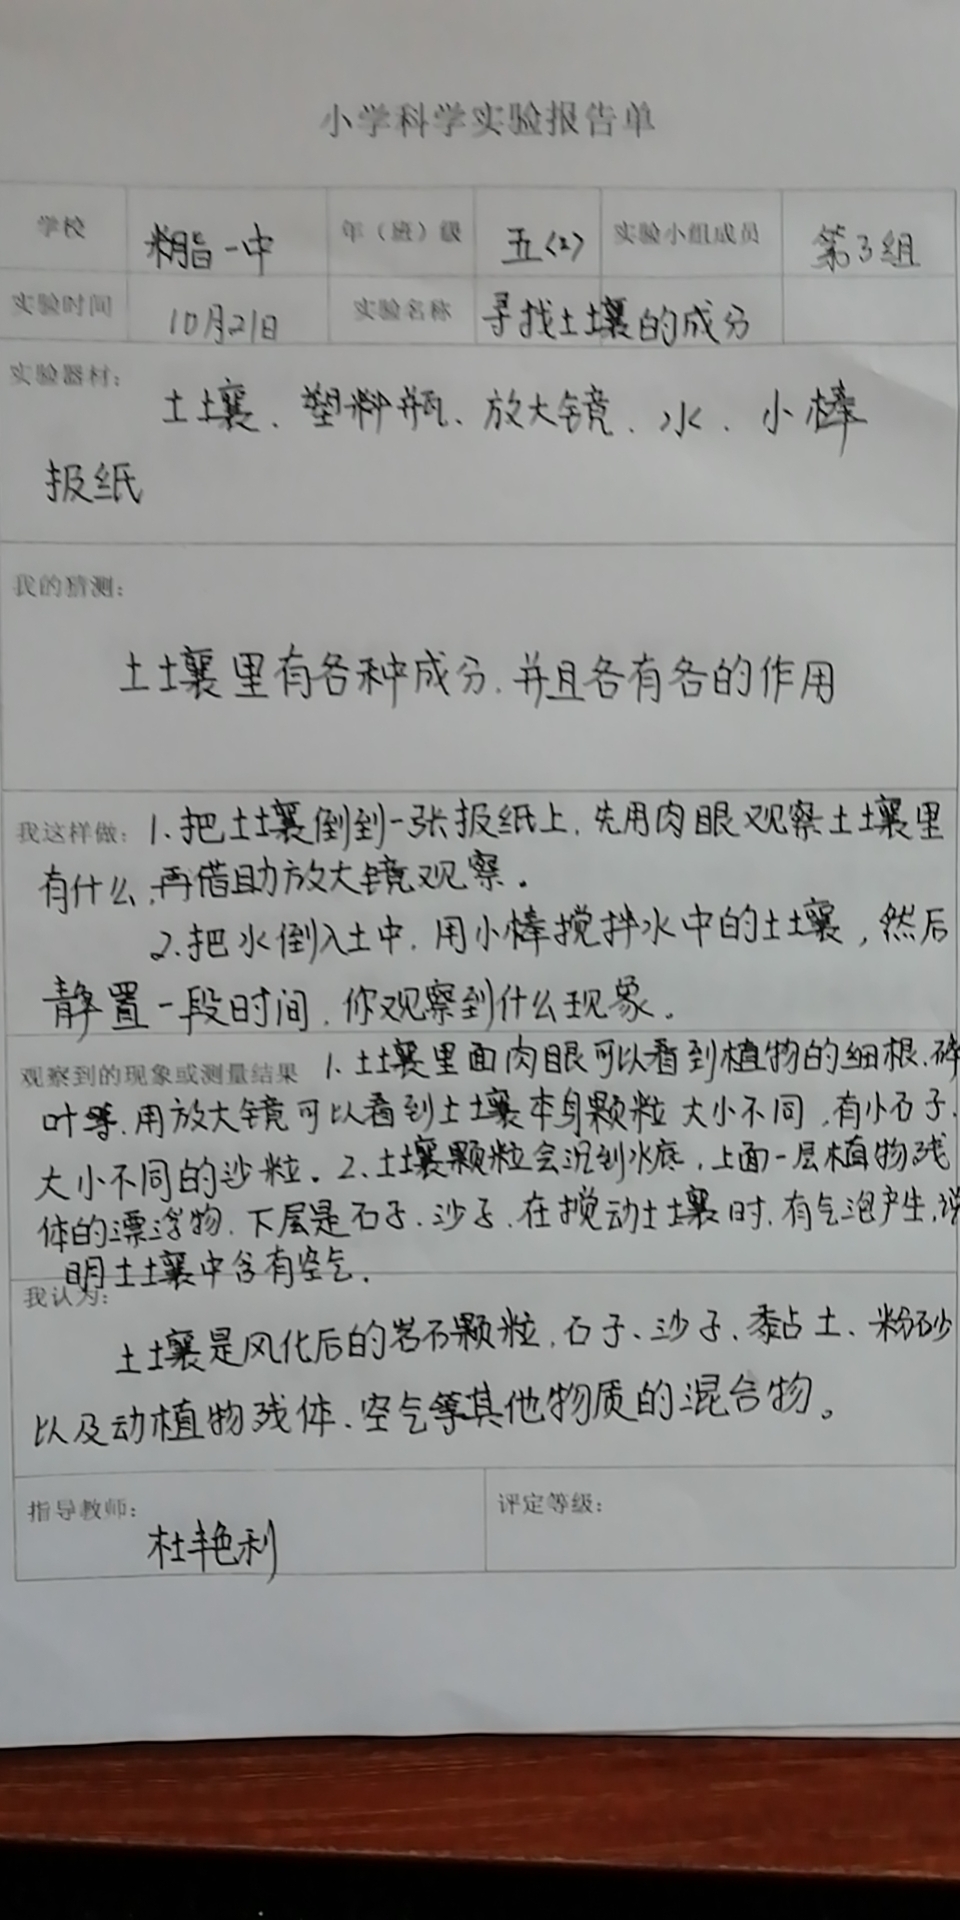 小学科学实验报告单
学校 米脂一中 年（班）级 五〈2〉 实验小组成员 第3组
实验时间 10月21日 实验名称 寻找土壤的成分
实验器材：
土壤、塑料瓶、放大镜、水、小棒
报纸
我的猜测：
土壤里有各种成分，并且各有各的作用
我这样做：1.把土壤倒到一张报纸上，先用肉眼观察土壤里
有什么，再借助放大镜观察。
2.把水倒入土中，用小棒搅拌水中的土壤，然后
静置一段时间，你观察到什么现象。
观察到的现象或测量结果 1.土壤里面肉眼可以看到植物的细根、碎
叶等，用放大镜可以看到土壤本身颗粒大小不同，有小石子、
大小不同的沙粒。2.土壤颗粒会沉到水底，上面一层植物残
体的漂浮物，下层是石子、沙子，在搅动土壤时，有气泡产生，说
明土壤中含有空气。
我认为：
土壤是风化后的岩石颗粒，石子、沙子、黏土、粉砂
以及动植物残体、空气等其他物质的混合物。
指导教师： 评定等级：
杜艳利